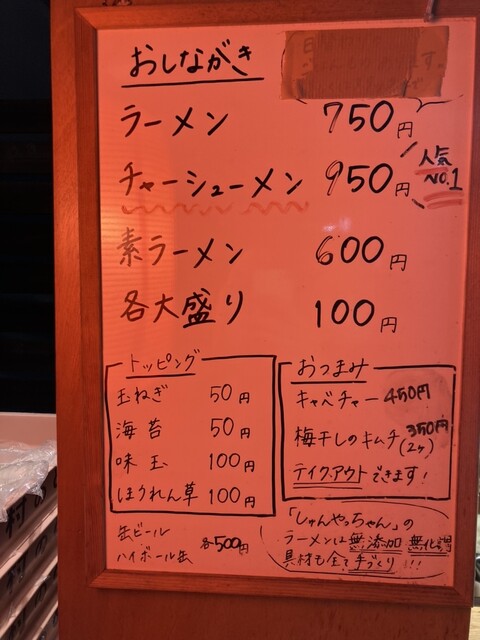 おしながき
ラーメン 750円
チャーシューメン 950円
人気
No.1
素ラーメン 600円
各大盛り 100円
トッピング
玉ねぎ 50円
海苔 50円
味玉 100円
ほうれん草 100円
おつまみ
キャベチャー 450円
梅干しのキムチ 350円
(2ヶ)
テイクアウトできます!
缶ビール
ハイボール缶
各500円
「しゅんやっちゃん」の
ラーメンは無添加 無化調
具材も全て手づくり!!!